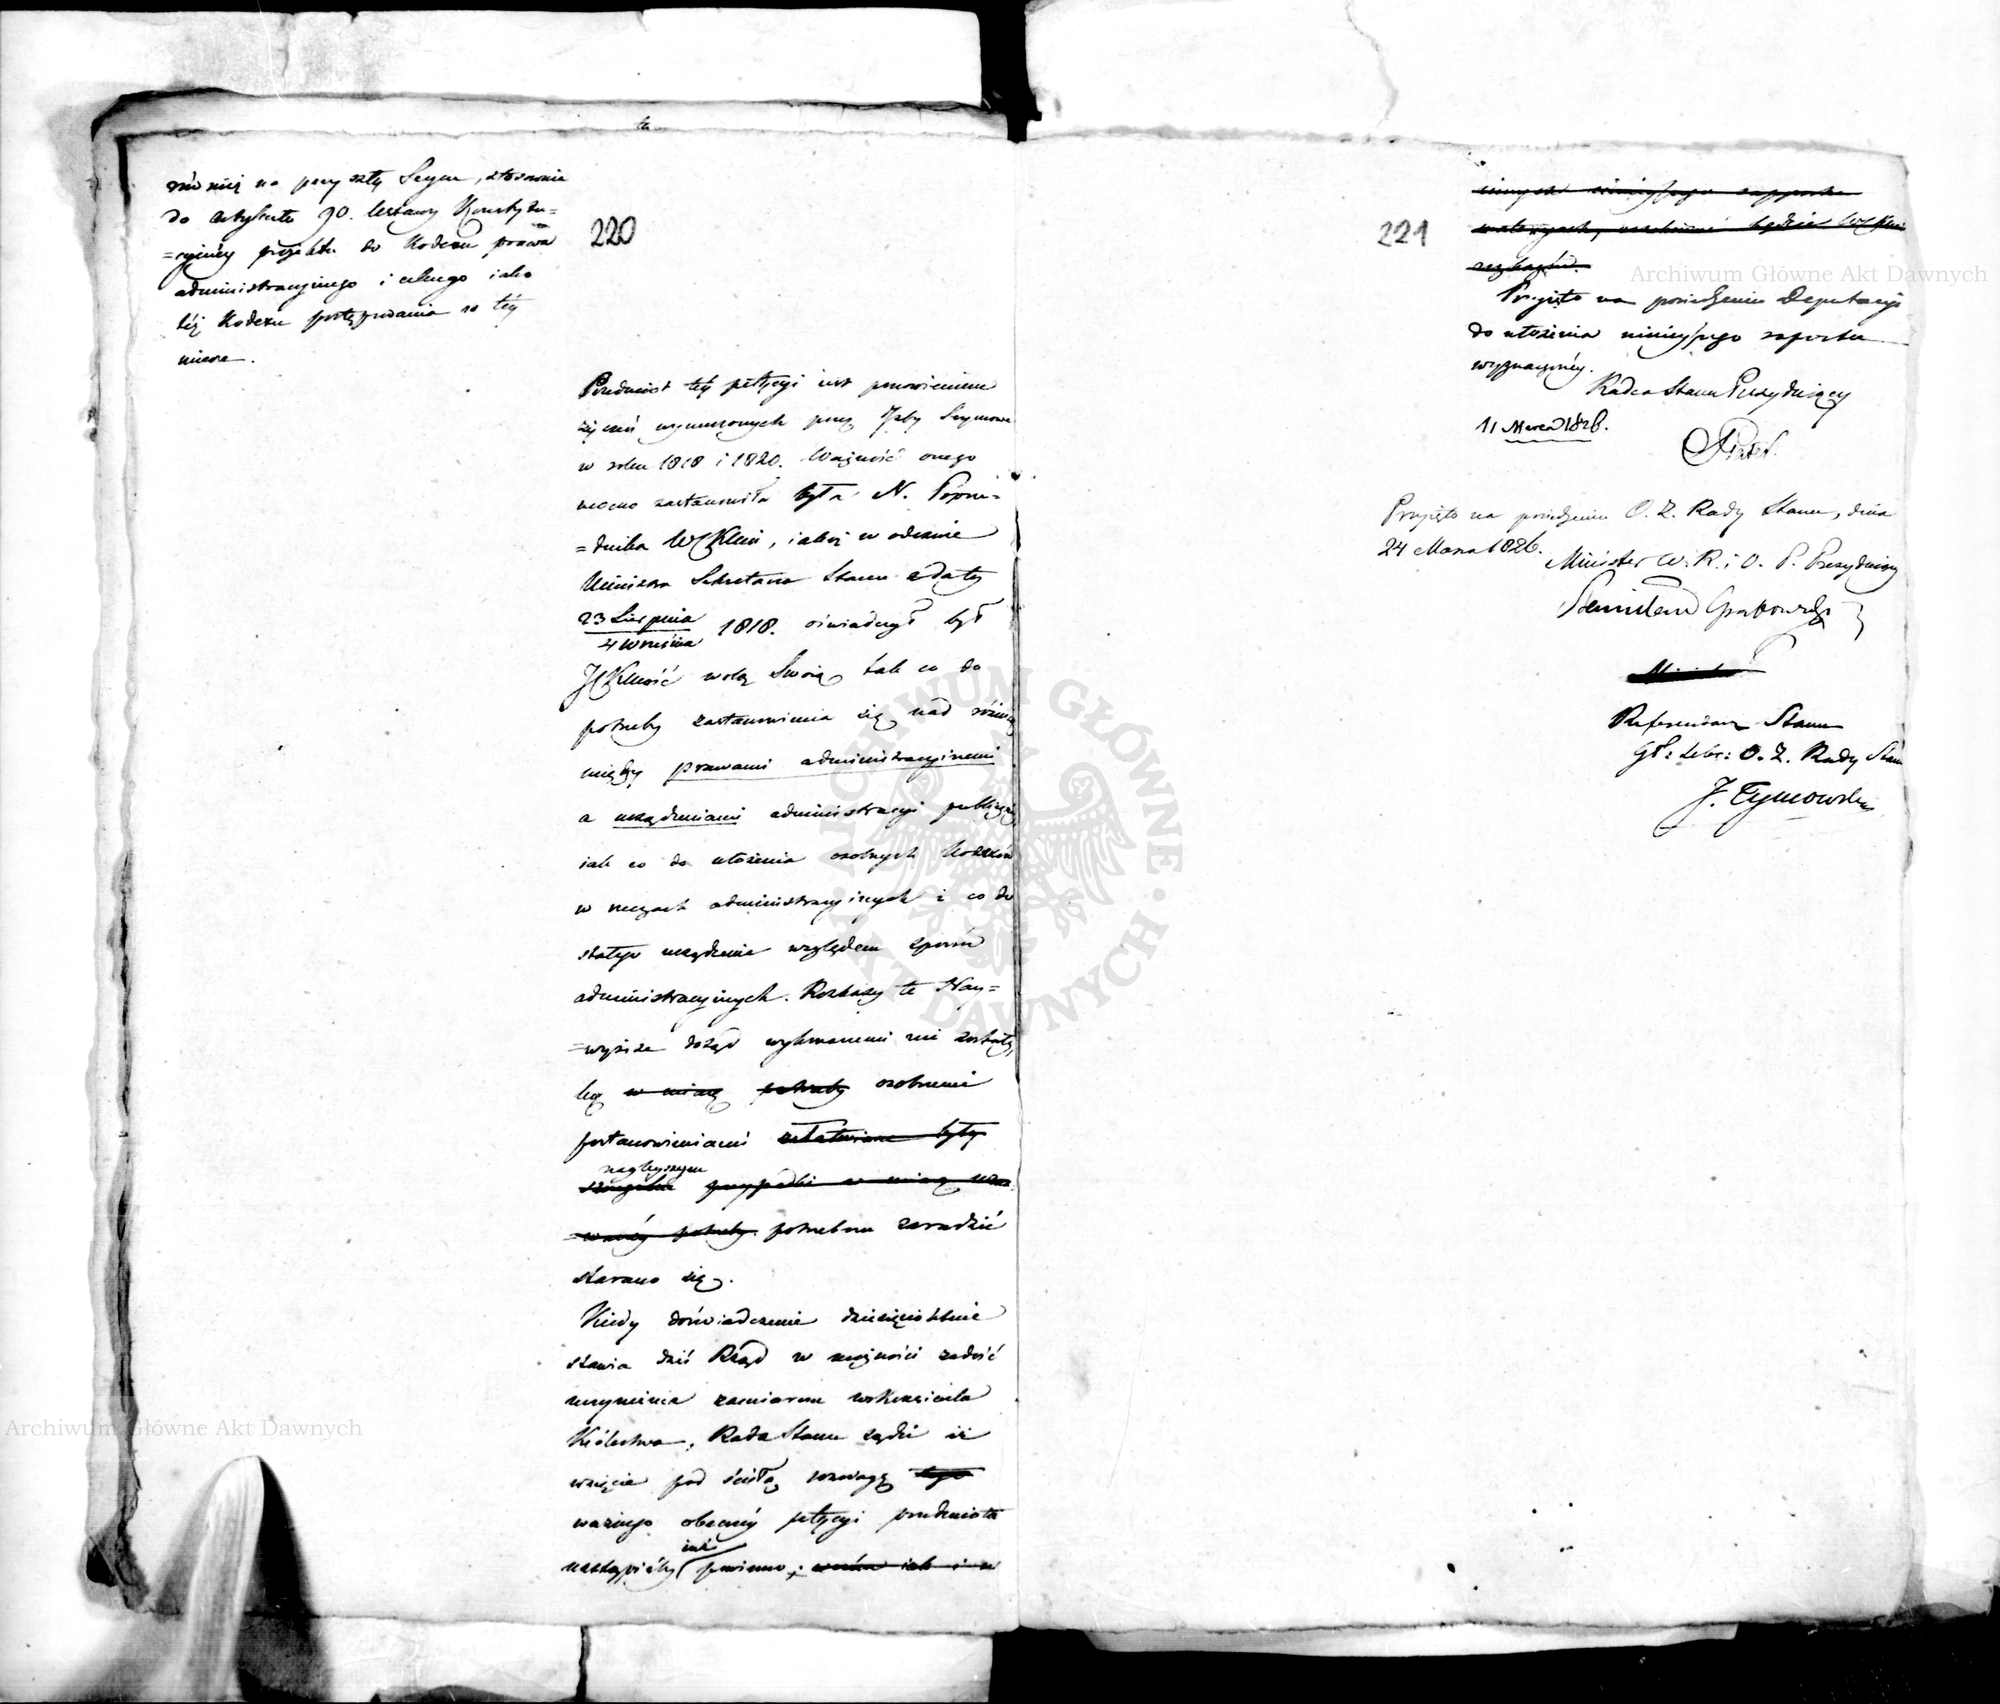 na przyszły Seym, stosownie
do artykułu 90. Ustawy Konstytu=
=cyinéy projektu do Kodexu prawa
administracyinego i całego iako
téż Kodexu postępowania w téy
mierze.
220
Przedmiot téy petycyi iest ponowieniem
życzeń wynurzonych przez Izby Seymowe
w roku 1818 i 1820. Ważność onego
mocno zastanowiła była N. Poprze=
=dnika WCKMci, iakoż w odezwie
Ministra Sekretarza Stanu z daty
23 Sierpnia
4 Września 1818. oświadczył był
JCKMość wolą Swoią tak co do
potrzeby zastanowienia się nad różnicą
między prawami administracyinemi
a urządzeniami administracyi publicznéy
iak co do ułożenia osobnych Kodexów
w rzeczach administracyinych i co do
stałego urządzenia względem sporów
administracyinych. Rozkazy te Nay=
=wyższe dotąd wykonanemi nie zostały,
lecz w miarę potrzeby osobnemi
postanowieniami załatwiane były
naglejszym
szczególne przypadki w miarę
potrzeby potrzebom zaradzić
starano się.
Kiedy doświadczenie dziesięcioletnie
stawia dziś Rząd w możności zadość
uczynienia zamiarom wskrzesiciela
Królestwa, Rada Stanu sądzi iż
wzięcie pod ścisłą rozwagę tego
ważnego obecnéy petycyi przedmiotu
iuż
nastąpićby powinno, iak i w
221
innych ninieyszego rapportu
materyach, oczekiwać będzie WCKMci
rozkazów.
Przyięto na posiedzeniu Deputacyi
do ułożenia ninieyszego raportu
wyznaczonéy.
Radca Stanu Prezyduiący
11 Marca 1826.
Przyięto na posiedzeniu O. Z. Rady Stanu, dnia
24 Marca 1826.
Minister W. R. i O. P. Prezyduiący
Stanisław Grabowski
Minister
Referendarz Stanu
O. Z. Rady Stanu
J. Tymowski
Archiwum Główne Akt Dawnych
Archiwum Główne Akt Dawnych
ARCHIWUM GŁÓWNE AKT DAWNYCH